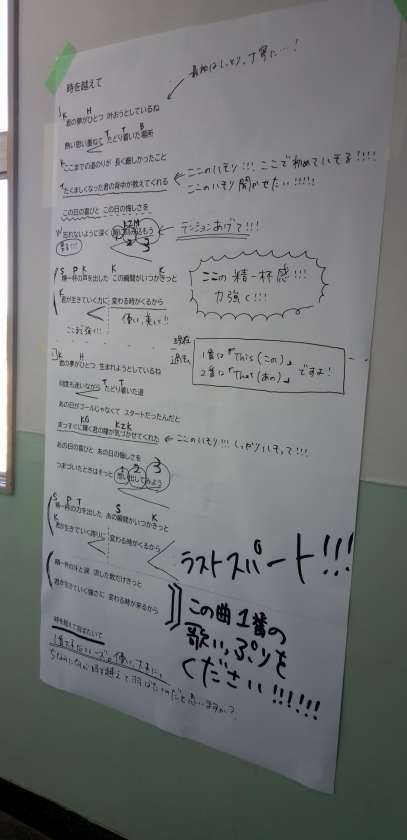 時を越えて
最初はしっとり、丁寧に…!
1. K H
君の夢がひとつ 叶おうとしているね
T T B
熱い思い重ねて たどり着いた場所
K
ここまでの道のりが 長く厳しかったこと
たくましくなった君の背中が教えてくれる
ここのハモリ!!! ここで初めてハモる!!!!
ここのハモリ聞かせたい!!!!!
この日の喜びと この日の悔しさを
忘れないように深く 胸に刻み込もう
1 2 3
テンションあげて!!!
S P K K K
精一杯の声を出した この瞬間がいつかきっと
K
君が生きていく力に 変わる時がくるから
優しい、美しい!!
ここの精一杯感!!!
力強く!!!
現在
過去
1番は「This(この)」
2番は「That(あの)」ですよ!
2. K H
君の夢がひとつ 生まれようとしているね
T T
何度も迷いながら たどり着いた道
あの日がゴールじゃなくて スタートだったんだと
KG KZK
まっすぐに輝く君の瞳が気づかせてくれた
ここのハモリ!!! しっかりハモって!!!
あの日の喜びと あの日の悔しさを
1 2 3
つまづいたときはそっと 思い出してみよう
S P T S K
精一杯の力を出した あの瞬間がいつかきっと
K
君が生きていく誇りに 変わる時がくるから
ラストスパート!!!
精一杯の汗と涙 流した数だけきっと
君が生きていく強さに 変わる時が来るから
この曲1番の
歌いっぷりを
ください!!!!!!
時を越えて羽ばたいて
1番大事なフレーズ。優しく、大事に。
ちなみになんで時を越えて羽ばたいてだと思いますか?